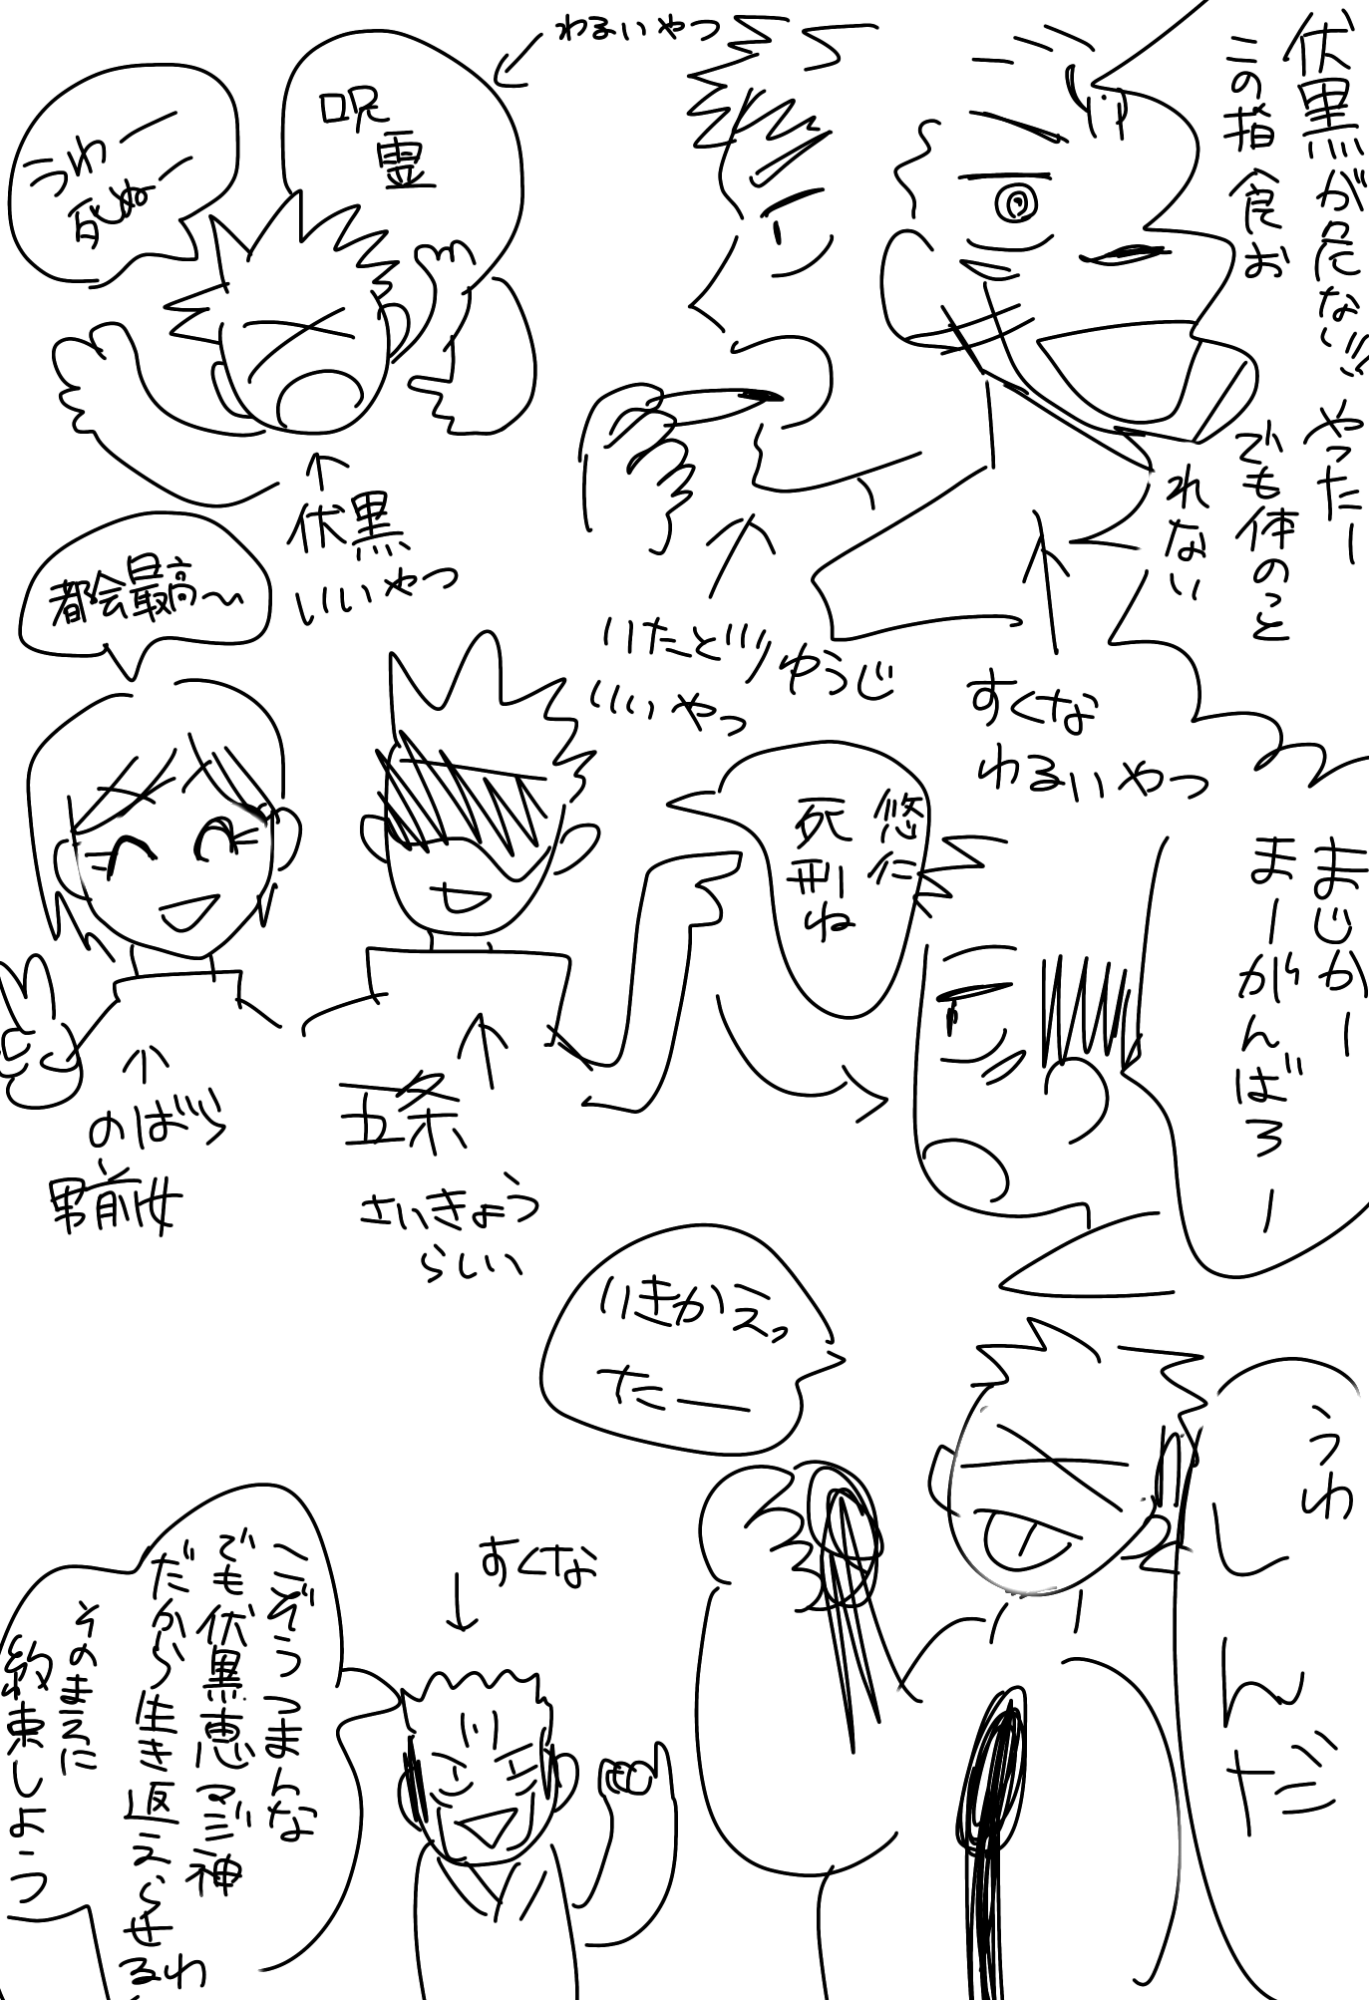 伏黒が危ない!!!
この指食お
やったー
でも体のこと
れない
わるいやつ
呪霊
うわー
死ぬー
伏黒
いいやつ
いたどりゆうじ
いいやつ
すくな
わるいやつ
都会最高〜
のばら
男前女
五条
さいきょう
らしい
悠仁
死刑ね
まじかー
まーがんばろー
いきかえっ
たー
うわ
しんだ
すくな
こぞうつまんな
でも伏黒恵マジ神
だから生き返えらせ
るわ
そのまえに
約束しよう